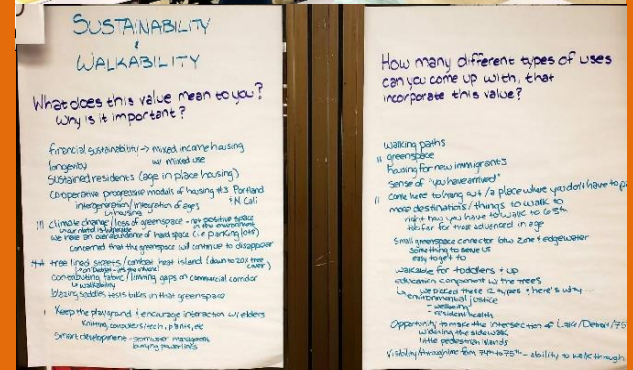 SUSTAINABILITY
&
WALKABILITY
What does this value mean to you?
Why is it important?
financial sustainability -> mixed income housing
longevity w/ mixed use
sustained residents (age in place housing)
cooperative progressive models of housing #3 Portland
intergeneration/integration of ages + N Cali
↳ housing
climate change/loss of greenspace - net positive
we have an overabundance of hard space (i.e parking lots)
concerned that the greenspace will continue to disappear
tree lined streets/combat heat island (down to 20% tree
cover)
contributing fabric/limiting gaps on commercial corridor
↳ walkability
blazing saddles tests bikes in that greenspace
Keep the playground & encourage interaction w/ elders
Knitting, computers/tech, plants, etc
Smart development - stormwater management
burying powerlines
How many different types of uses
can you come up with, that
incorporate this value?
walking paths
greenspace
housing for new immigrants
sense of "you have arrived"
come here to hang out/a place where you don't have to
more destinations/things to walk to
right now you have to walk to
too far for those advanced in age
Small greenspace connector btw zone & edgewater
something to serve us
easy to get to
walkable for toddlers + up
education component w/ the trees
↳ we placed these 12 types & here's why...
↳ environmental justice
- wellbeing
- resident health
Opportunity to make the intersection of Lake/Detroit/75
widening the sidewalk
little pedestrian islands
Visibility/throughline from 74th to 75th - ability to walk through